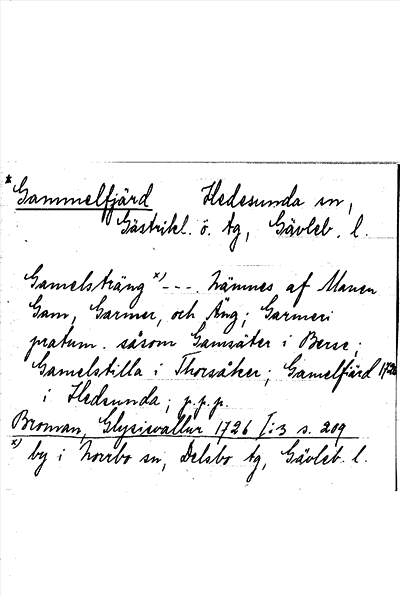 * Gammelfjärd Hedesunda sn,
Gästrikl. ö. tg, Gävleb. l.
Gamelsträng x) --- nämnes af Manen
Gam, Garmer, och Äng; Garmeri
pratum. såsom Gamsäter i Berse;
Gamelstilla i Thorsåker; Gamelfiärd 1726
i Hedesunda; p.p.p.
Broman, Glysisvallur 1726 I:3 s. 209
x) by i Norrbo sn, Delsbo tg, Gävleb. l.